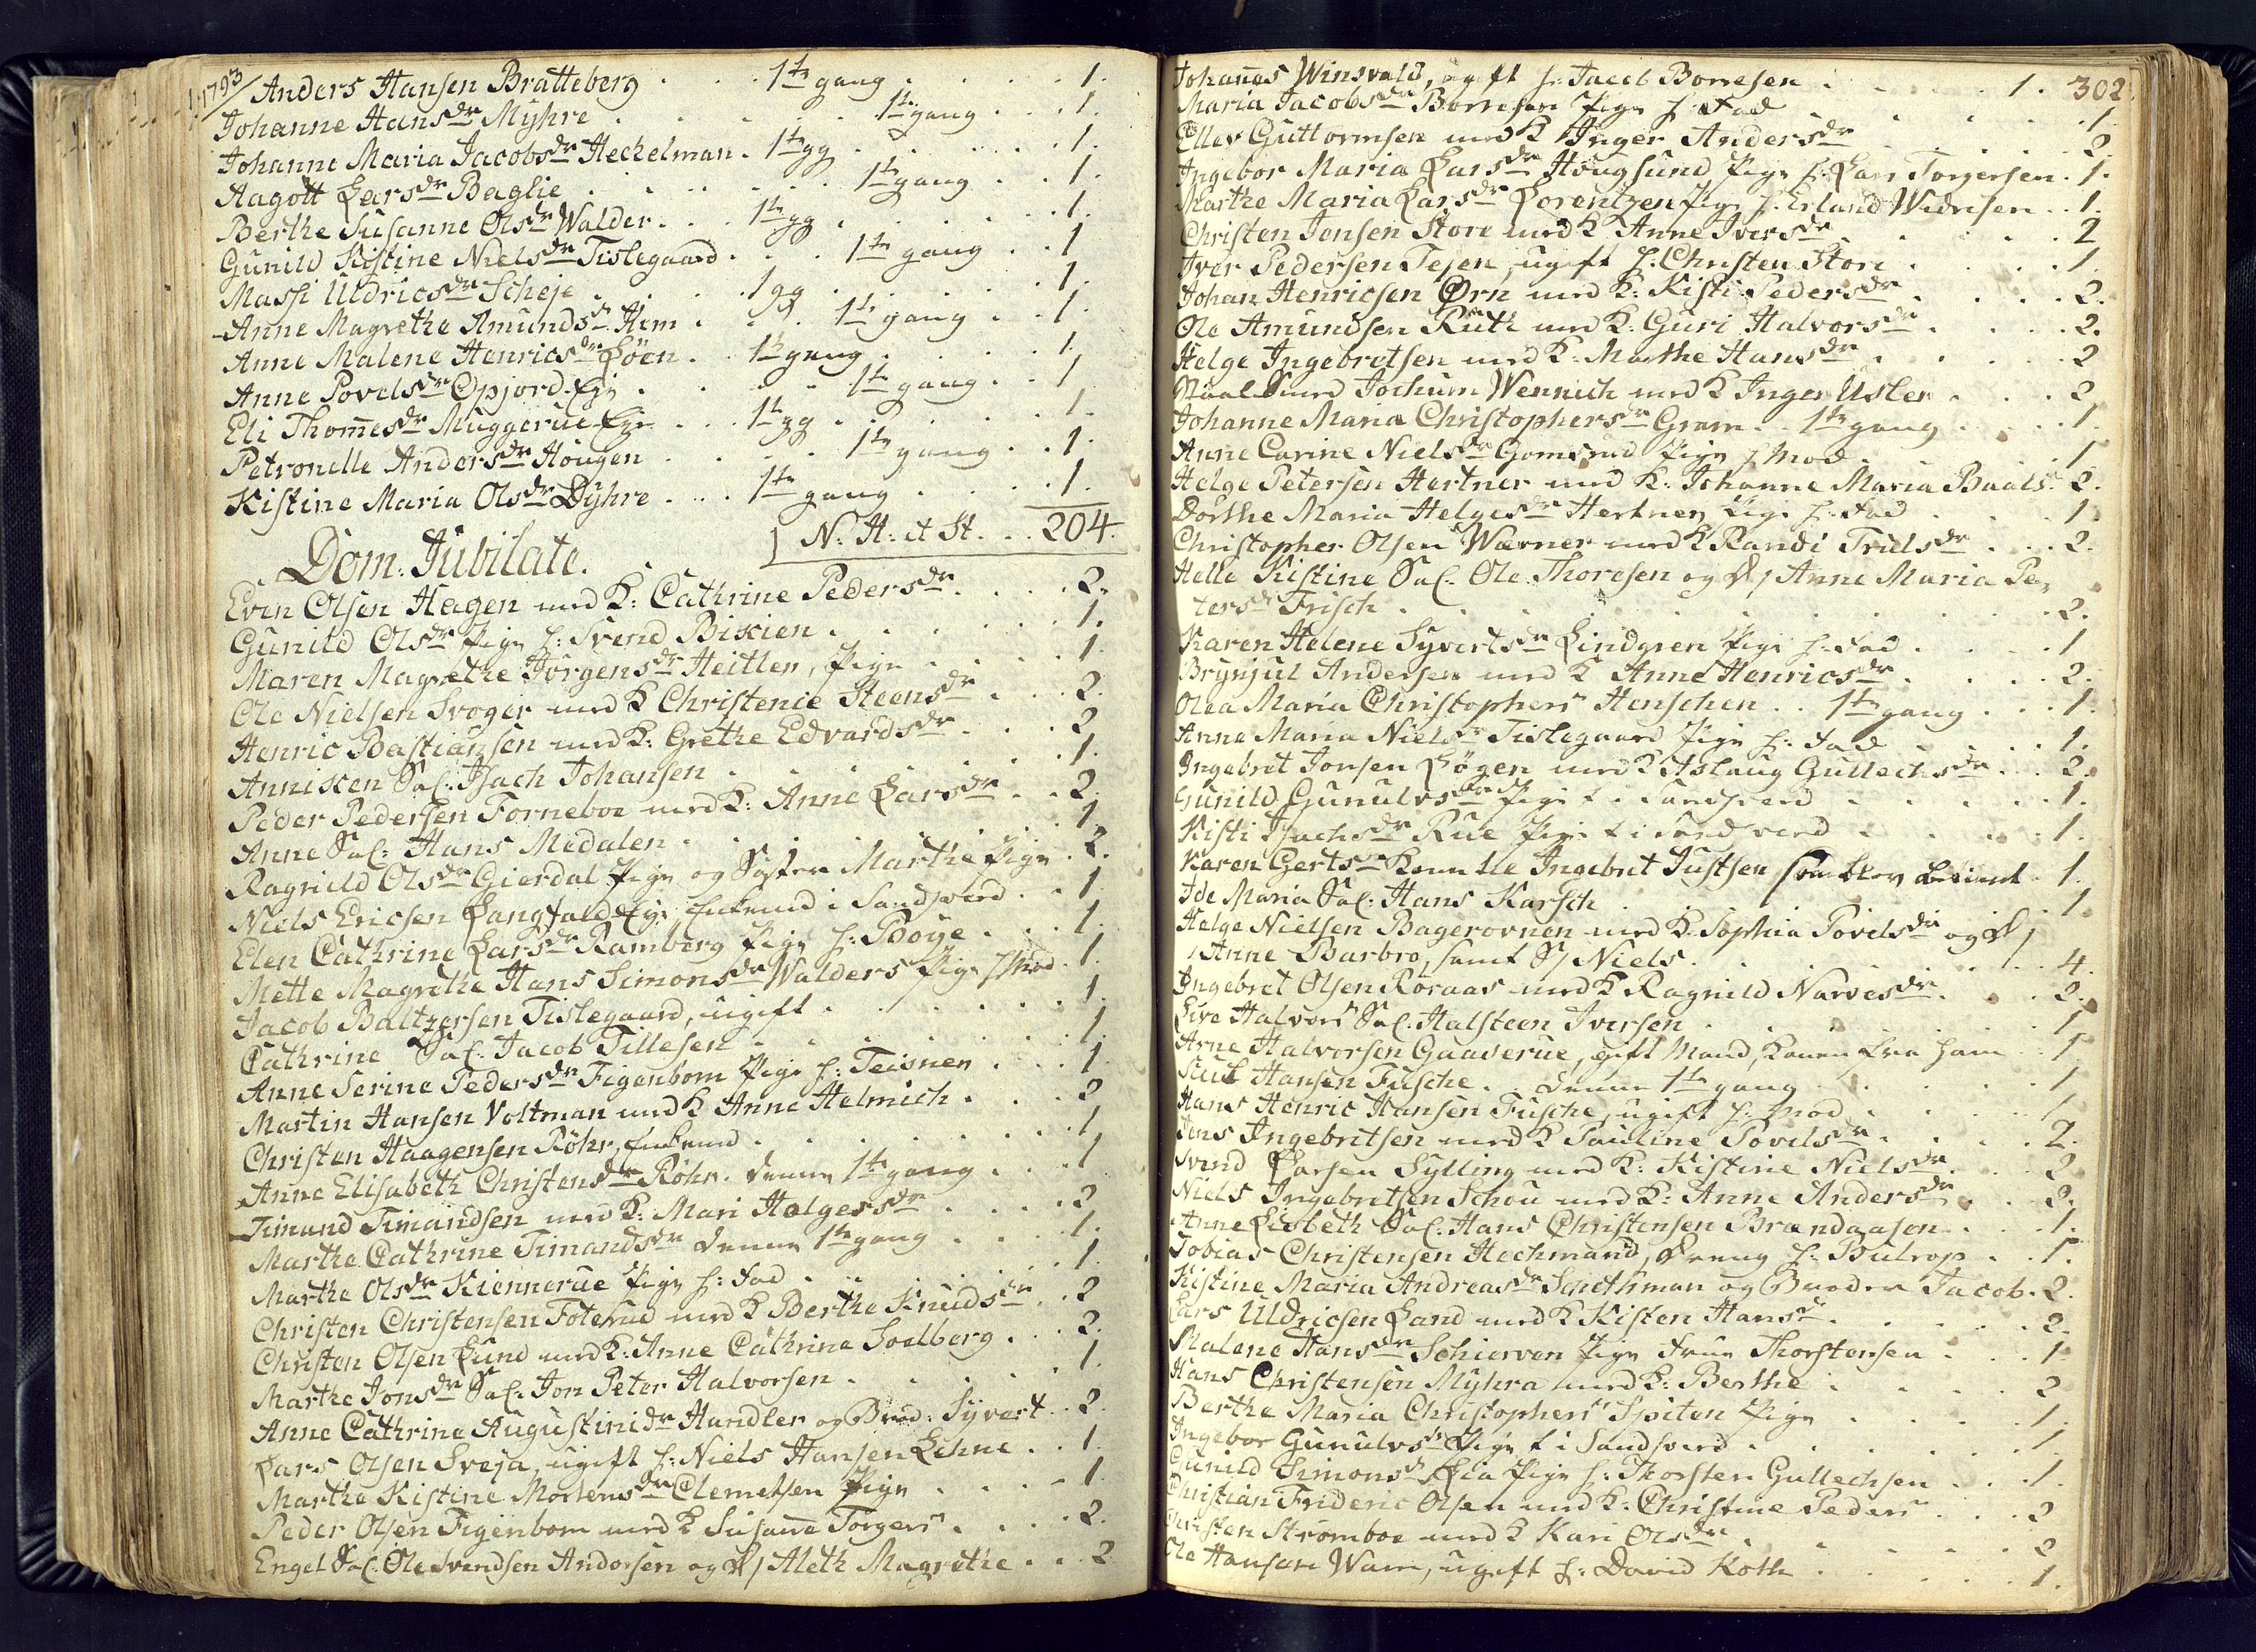 1793
Anders Hansen Bratteberg . . . 1te gang . . . . 1.
Johanne Hansdr Myhre . . . . 1te gang . . . 1.
Johanne Maria Jacobsdr Heckelman . 1te gg . . . . 1.
Aagott Larsdr Baglie . . . . 1te gang . . 1.
Berthe Susanne Olsdr Walder . . . 1te gg . . . . 1.
Gunild Kistine Nielsdr Tislegaard . . . 1te gang . . 1
Massi Uldricsdr Scheje . . . 1 gg . . . . 1.
Anne Magrethe Amundsdr Hem . . . 1te gang . . 1.
Anne Malene Henricsdr Löen . . 1te gang . . . . 1.
Anne Povelsdr Opjord Eje . . . . 1te gang . . 1
Eli Thomesdr Muggerue Eje . . . 1te gg . . . . 1.
Petronelle Andersdr Hougen . . . . 1te gang . . 1.
Kistine Maria Olsdr Dyhre . . . 1te gang . . . . 1.
N. H. et St. . . 204.
Dom. Jubilate.
Even Olsen Hagen med K: Cathrine Pedersdr . . . . 2.
Gunild Olsdr Pige h: Svend Bixien . . . . 1.
Maren Magrethe Jörgensdr Heitler, Pige . . . . 1.
Ole Nielsen Svoger med K Christenie Steensdr . . . 2.
Henric Bastiansen med K: Grethe Edvardsdr . . . 2
Annixen Sal. Isach Johansen . . . . 1.
Peder Pedersen Forneboe med K: Anne Larsdr . . 2.
Anne Sal: Hans Medalen . . . . 1.
Ragnild Olsdr Gierdal Pige og Søster Marthe Pige . 2.
Niels Ericsen Langfald Eje, Enkemd i Sandsverd . . 1
Elen Cathrine Larsdr Ramberg Pige h: Böye . . . 1.
Mette Magrethe Hans Simonsdr Walders Pige h Mod . 1.
Jacob Baltzersen Tislegaard, ugift . . . . 1.
Cathrine Sal. Jacob Tillesen . . . . 1.
Anne Serine Pedersdr Figenbom Pige h: Teisner . . . 1
Martin Hansen Voltman med K Anne Helmich . . . 2
Christen Haagensen Röhr, Enkemd . . . . 1
Anne Elisabeth Christensdr Röhr. denne 1te gang . . . 1
Timand Timandsen med K: Mari Helgesdr . . . . 2
Marthe Cathrine Timandsdr denne 1te gang . . . . 1.
Marthe Olsdr Kiennerue Pige h: Fad . . . . 1.
Christen Christensen Foterud med K Berthe Knudsdr . . 2
Christen Olsen Lund med K: Anne Cathrine Soelberg . . . 2.
Marthe Jonsdr Sal. Jon Peter Halvorsen . . . . 1.
Anne Cathrine Augustinidr Handler og Brod: Syvert . . 2.
Lars Olsen Sveja, ugift h: Niels Hansen Lehne . . 1.
Marthe Kistine Mortensdr Clemetsen Pige . . . 1
Peder Olsen Figenbom med K Susane Torgers . . . . 2.
Engel Sal. Ole Svendsen Andorsen og D/ Aleth Magrethe . . 2
302.
Johanes Winsvald, ugift h: Jacob Borresen . . . . 1.
Maria Jacobsdr Borresen Pige h: Fad . . . . 1
Ellev Guttormsen med K Inger Andersdr . . . 2
Ingebor Maria Larsdr Hougsund Pige h: Lars Torgersen . 1.
Marthe Maria Larsdr Lorentzen Pige h: Erland Widrisen . . 1.
Christen Jensen Store med K Anne Iversdr . . . . 2
Iver Pedersen Tejen, ugift h: Christen Store . . . . 1.
Johan Henricsen Ørn med K: Kisti Pedersdr . . . . 2.
Ole Amundsen Ruth med K: Guri Halvorsdr . . . . 2.
Helge Ingebretsen med K: Marthe Hansdr . . . . 2
Jochum Wennich med K Inger Usler . . . 2
Johanne Maria Christophersdr Gram . . 1te gang . . . . 1.
Anne Carine Nielsdr Gomsrud Pige h Mod . . . . 1
Helge Petersen Hertner med K: Johanne Maria Baals . 2.
Dorthe Maria Helgesdr Hertner Pige h: Fad . . . 1.
Christopher Olsen Wærner med K Randi Truelsdr . . . 2.
Helle Kistine Sal. Ole Thoresen og D/ Anne Maria Pe-
tersdr Frisch . . . . 2.
Karen Helene Syvertsdr Lindgren Pige h: Fad . . . . 1
Brynjul Andersen med K Anne Henricsdr . . . . 2.
Olea Maria Christophers Henschen . . 1te gang . . . 1.
Anne Maria Nielsdr Tislegaard Pige h: Fad . . . . 1.
Ingebret Jonsen Högen med K Aslaug Gullechsdr . . . 2.
Gunild Gunulvsdr Pige f i Sandsverd . . . . 1.
Kisti Isachsdr Rue Pige f i Sandsverd . . . . 1.
Karen Gertsdr Ingebret Justsen som blev betient . 1.
Ide Maria Sal. Hans Karsch . . . . 1.
Helge Nielsen Bagerovnen med K Sophia Povelsdr og D/
Anne Barbro, samt S/ Niels . . . . 4.
Ingebret Olsen Röraas med K Ragnild Narvesdr . . . 2.
Live Halvors Sal. Halsteen Iversen . . . . 1
Arne Halvorsen Gaaserue, gift Mand, Konen fra ham . . 1
Hansen Fusche . . denne 1te gang . . . . 1
Hans Henric Hansen Fusche, ugift h: Mod . . . . 1.
Jens Ingebretsen med K Pauline Povelsdr . . . . 2.
Svend Larsen Sylling med K: Kistine Nielsdr . . . 2
Niels Ingebretsen Schou med K: Anne Andersdr . . . 2.
Anne Lisbeth Sal. Hans Christensen Brændaasen . . . 1.
Tobias Christensen Hechmand, Dreng h: Bulrop . . . 1.
Kistine Maria Andreasdr Smethman og Broder Jacob . 2.
Lars Uldricsen Land med K Kisten Hansdr . . . . 2.
Malene Hansdr Schierven Pige Frue Thorstensen . . . 1.
Hans Christensen Myhra med K: Berthe . . . . 2
Berthe Maria Christophers Spiten Pige . . . . 1.
Ingebor Gunulvsdr Pige f i Sandsverd . . . . 1.
Gunild Simonsdr Lia Pige h: Thorsten Gullechsen . . . 1.
Christian Frideric Olsen med K: Christine Peders . . . 2
Christen Stromboe med K Kari Olsdr . . . . 2
Ole Hansen Wam, ugift h: David Koth . . . . 1.